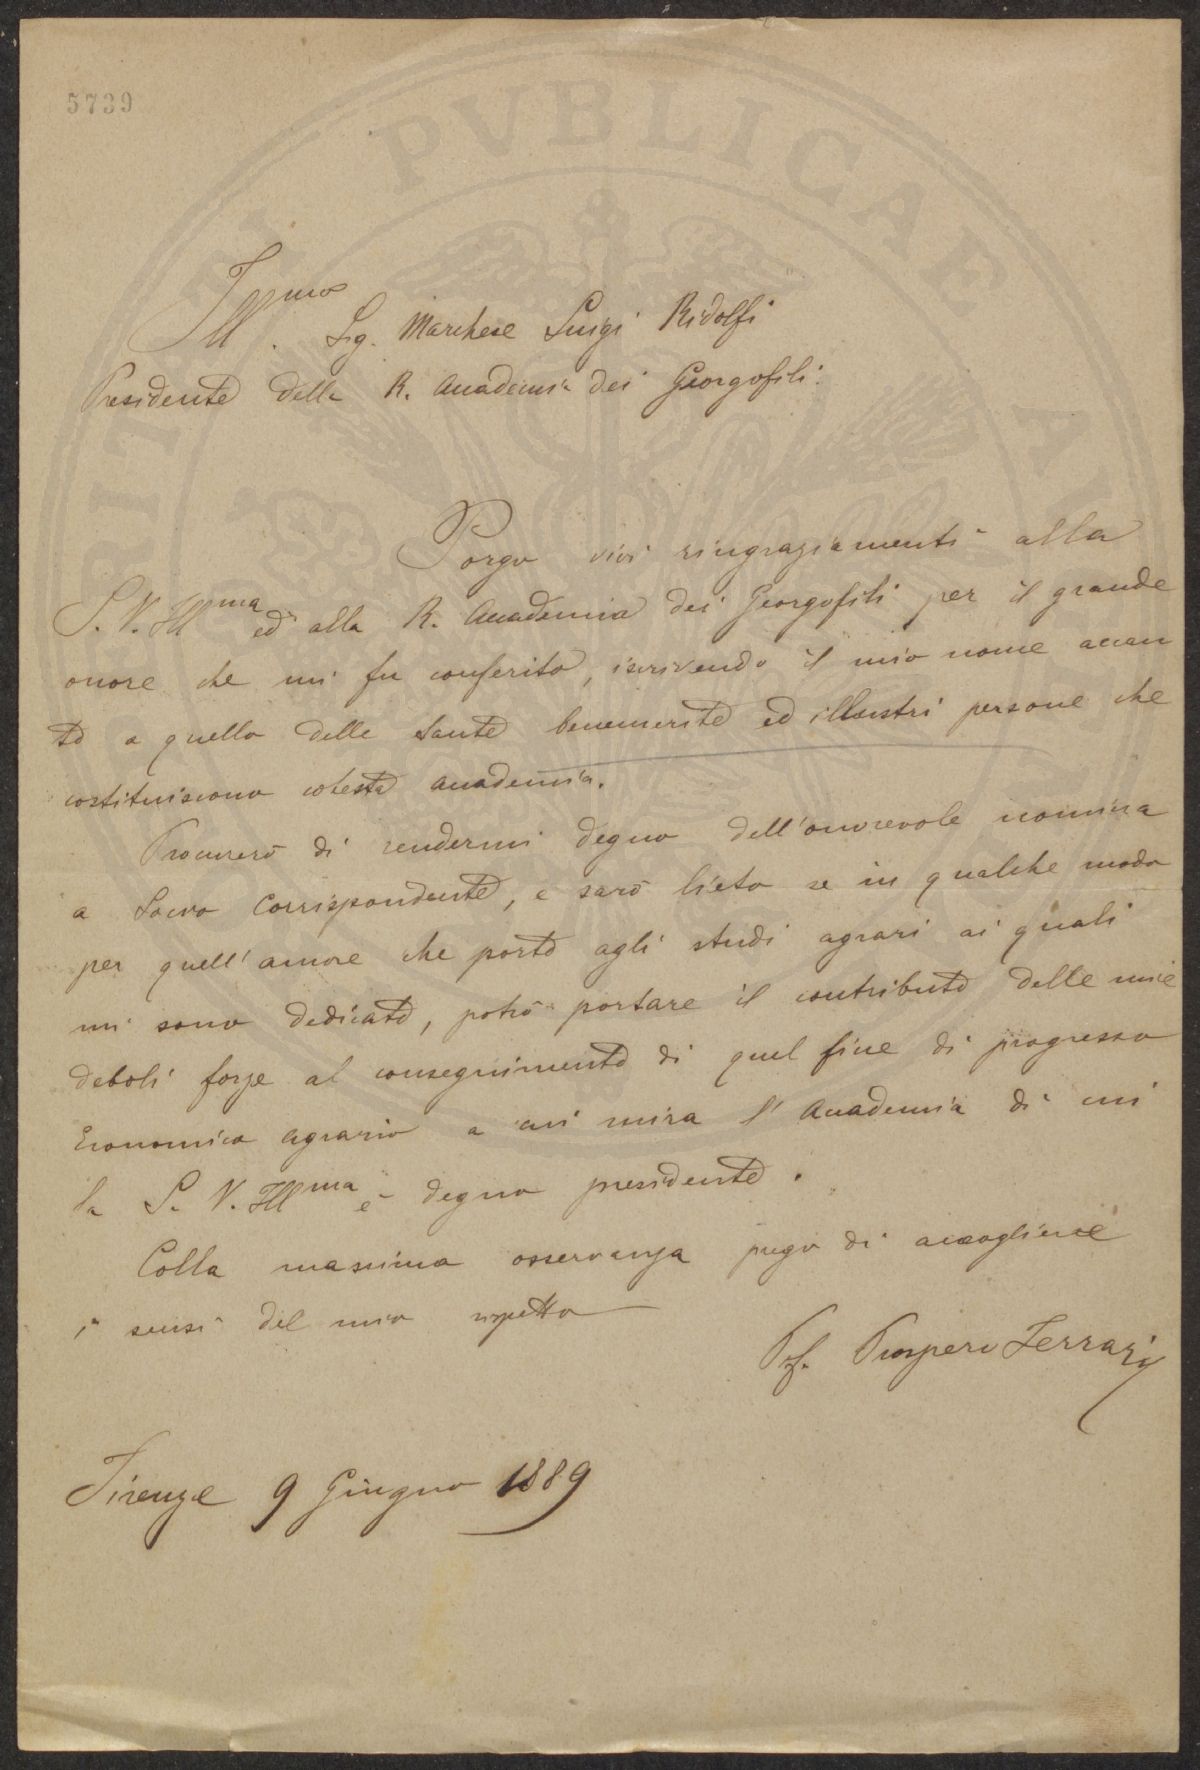 5739
PVBLICAE
Ill.mo Sig. Marchese Luigi Ridolfi
Presidente della R. Accademia dei Georgofili.
Porgo vivi ringraziamenti alla
S. V. Ill.ma ed alla R. Accademia dei Georgofili per il grande
onore che mi fu conferito, iscrivendo il mio nome accan
to a quello delle tante benemerite ed illustri persone che
costituiscono cotesta Accademia.
Procurerò di rendermi degno dell'onorevole nomina
a Socio Corrispondente, e sarò lieto se in qualche modo
per quell'amore che porto agli studi agrari ai quali
mi sono dedicato, potrò portare il contributo delle mie
deboli forze al conseguimento di quel fine di progresso
Economico agrario a cui mira l'Accademia di cui
la S. V. Ill.ma è degno presidente.
Colla massima osservanza prego di accogliere
i sensi del mio rispetto
Prof. Prospero Ferrari
Firenze 9 Giugno 1889